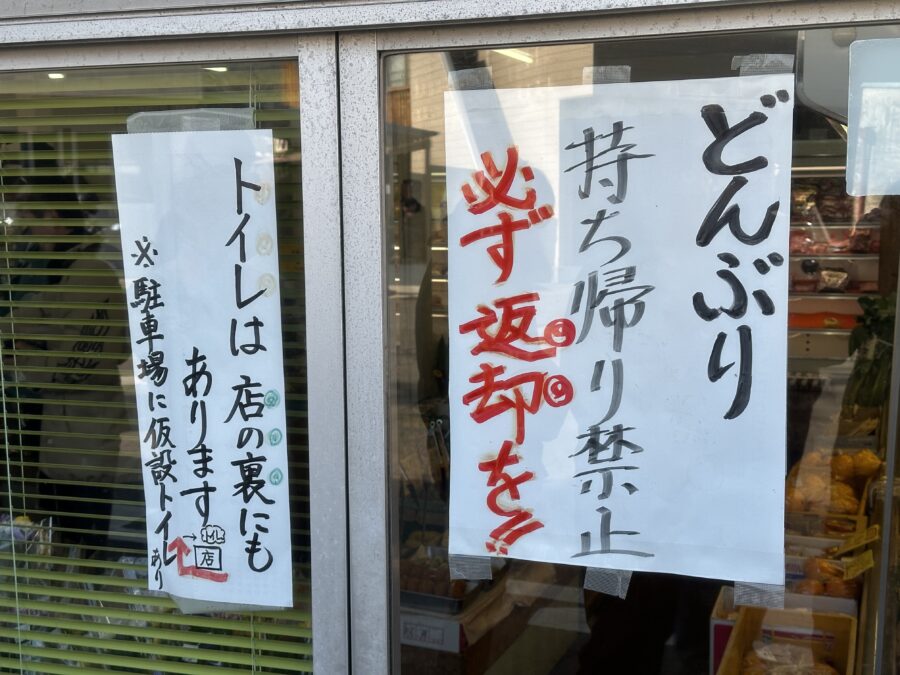 どんぶり
持ち帰り禁止
必ず返却を!!
トイレは店の裏にも
あります
※駐車場に仮設トイレあり
トイレ
店